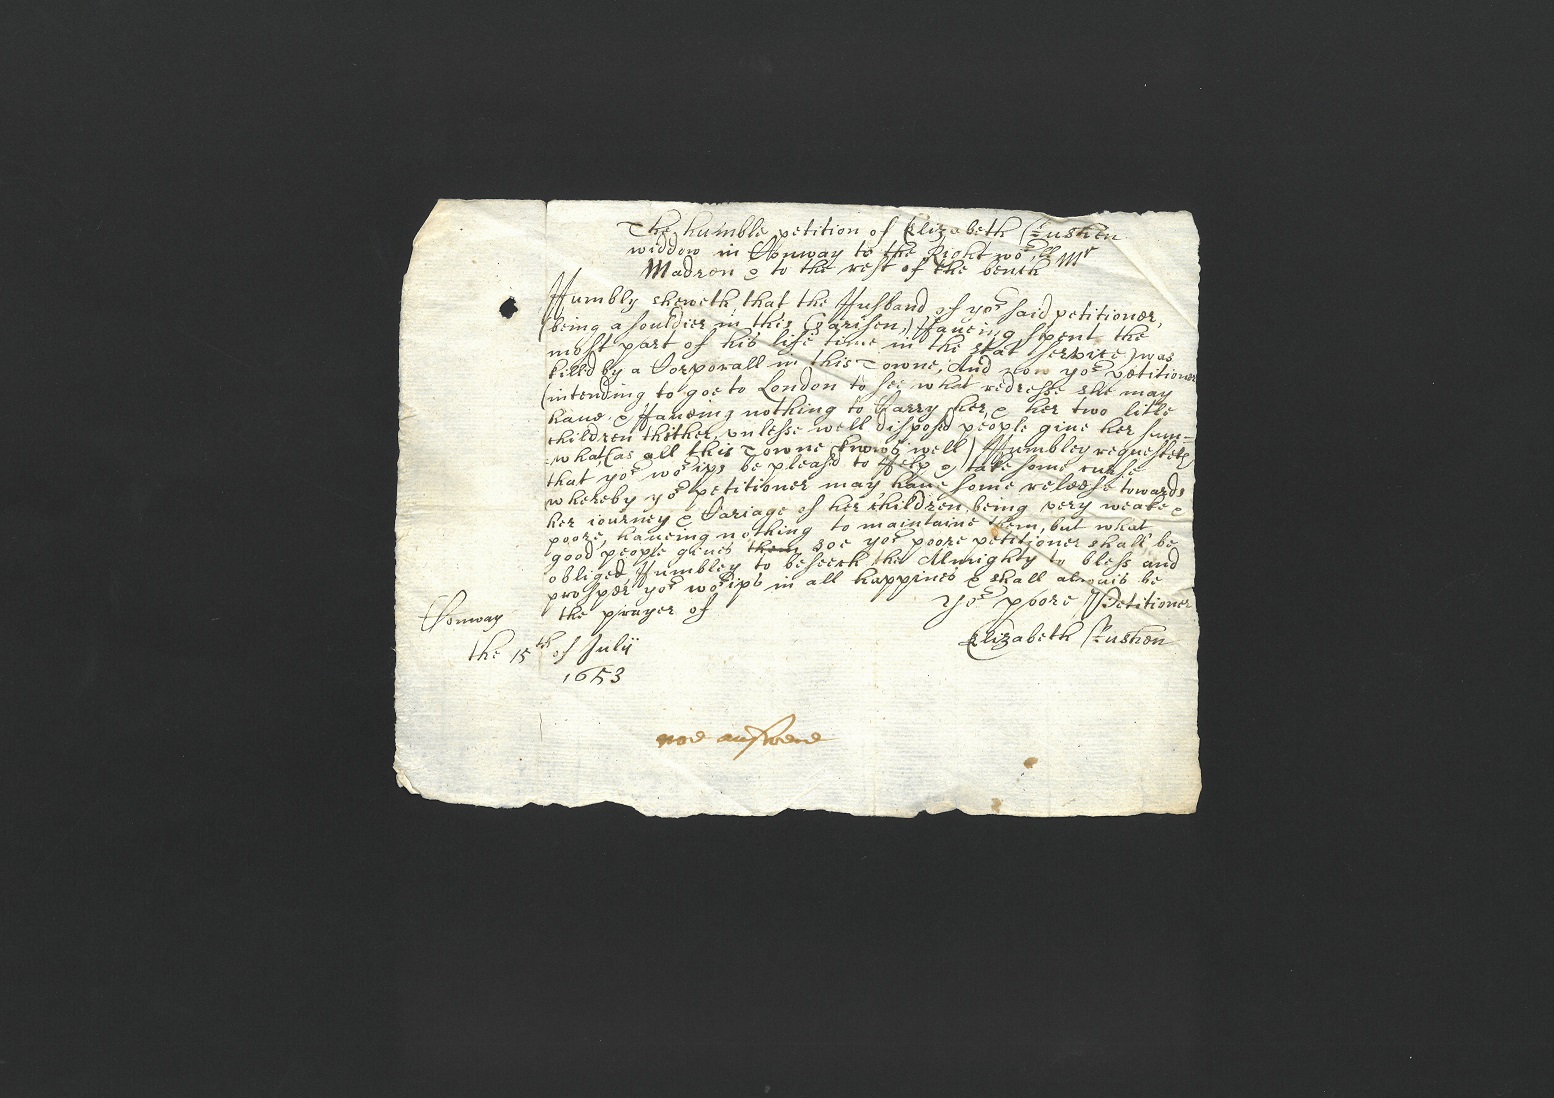 The humble petition of Elizabeth
widdow in Conway to the Right wor:ll Mr
Madron & to the rest of the bench
Humbly sheweth, that the Husband of yor said petitioner,
(being a souldier in this Garisen,) Haueing spent the
most part of his life time in the stat service) was
killd by a Corporall in this Towne, And now yor petitioner
(intending to goe to London to see what redresse she may
haue & Haueing nothing to Carry her, & her two litle
children thither, vnlesse well disposd people giue her sum=
=what, (as all this Towne knows well) Humbley requesteth
that yor worips be pleasd to Help & take some curse
whereby yor petitioner may haue some releese towards
her iourney & Cariage of her children, being very weake &
poore, haueing nothing to maintaine them, but what
good people giues them soe yor poore petitioner shall be
obliged, Humbley to beseech the Almighty to bless and
prosper yor worips in all happines & shall alwais be
the prayer of
Yor poore Petitioner
Elizabeth
Conway
the 15th of Julij
1653
noe answere